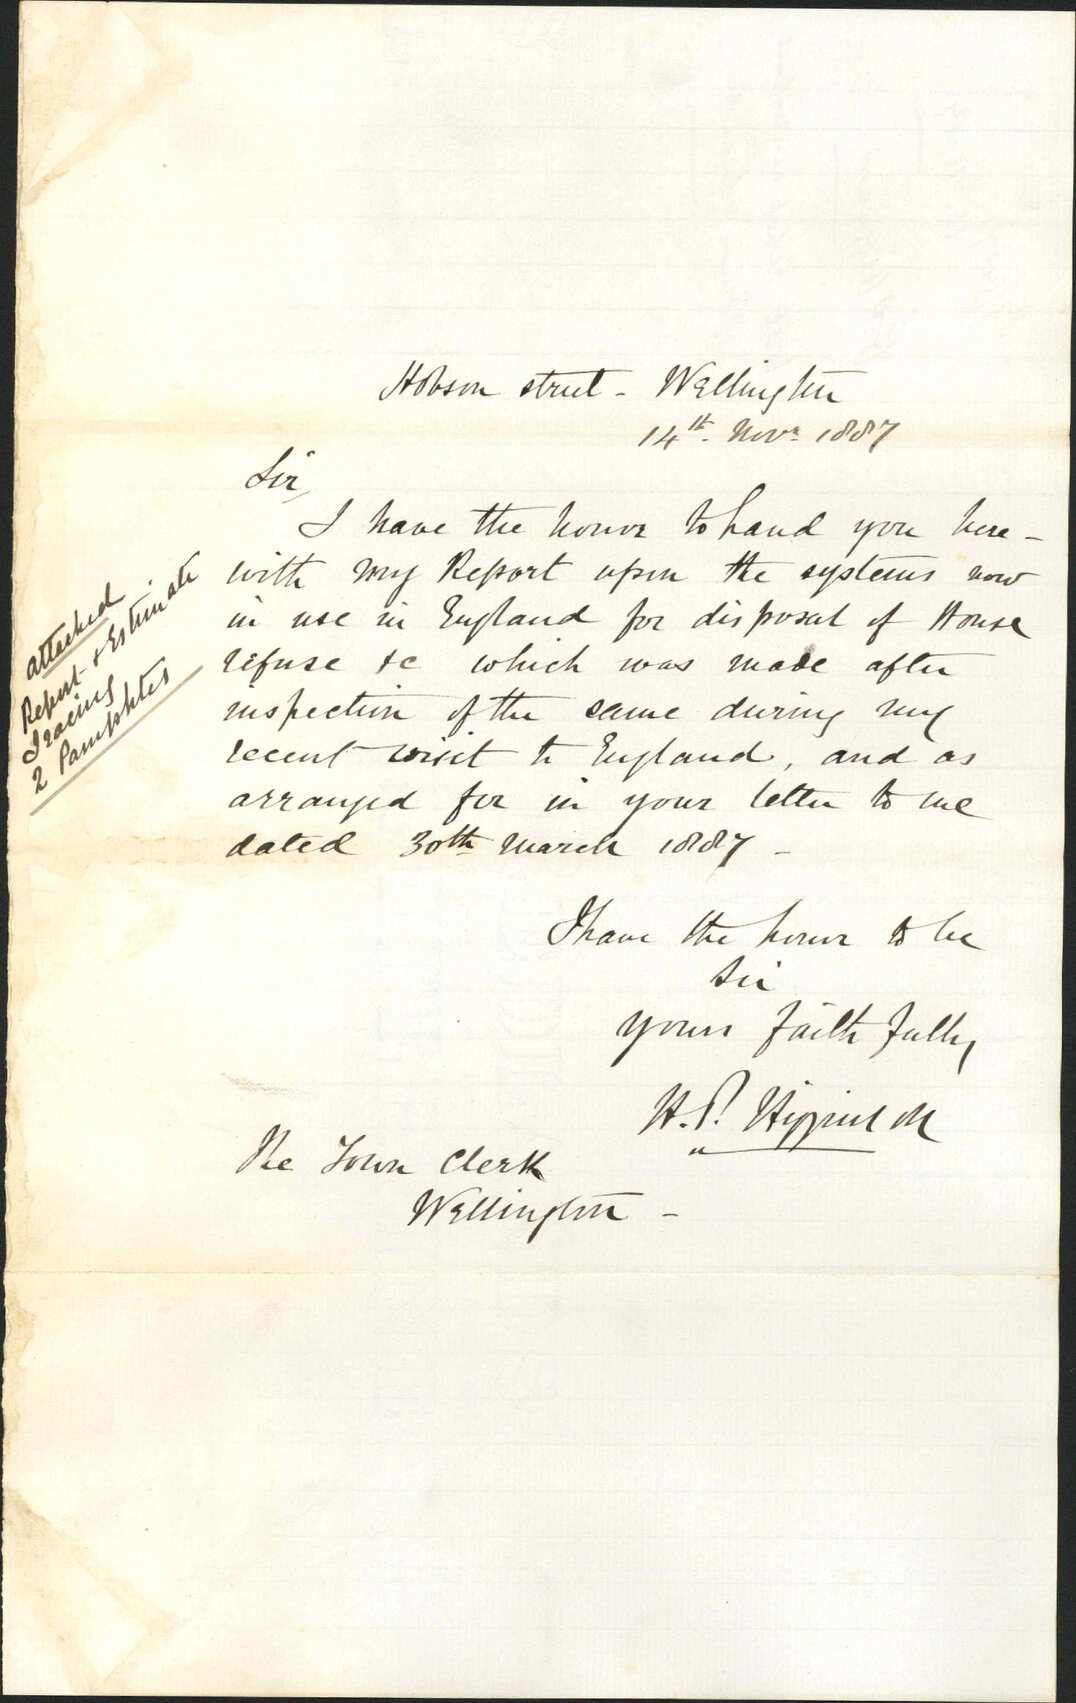 Hobson street - Wellington
14th. Novr 1887
Sir,
I have the honor to hand you here-
with my Report upon the systems now
in use in England for disposal of House
refuse &c which was made after
inspection of the same during my
recent visit to England, and as
arranged for in your letter to me
dated 30th March 1887 -
attached
Report & Estimate
Tracing
2 Pamphlets
I have the honor to be
Sir
yours faithfully,
H. P. Higginson
The Town Clerk
Wellington -